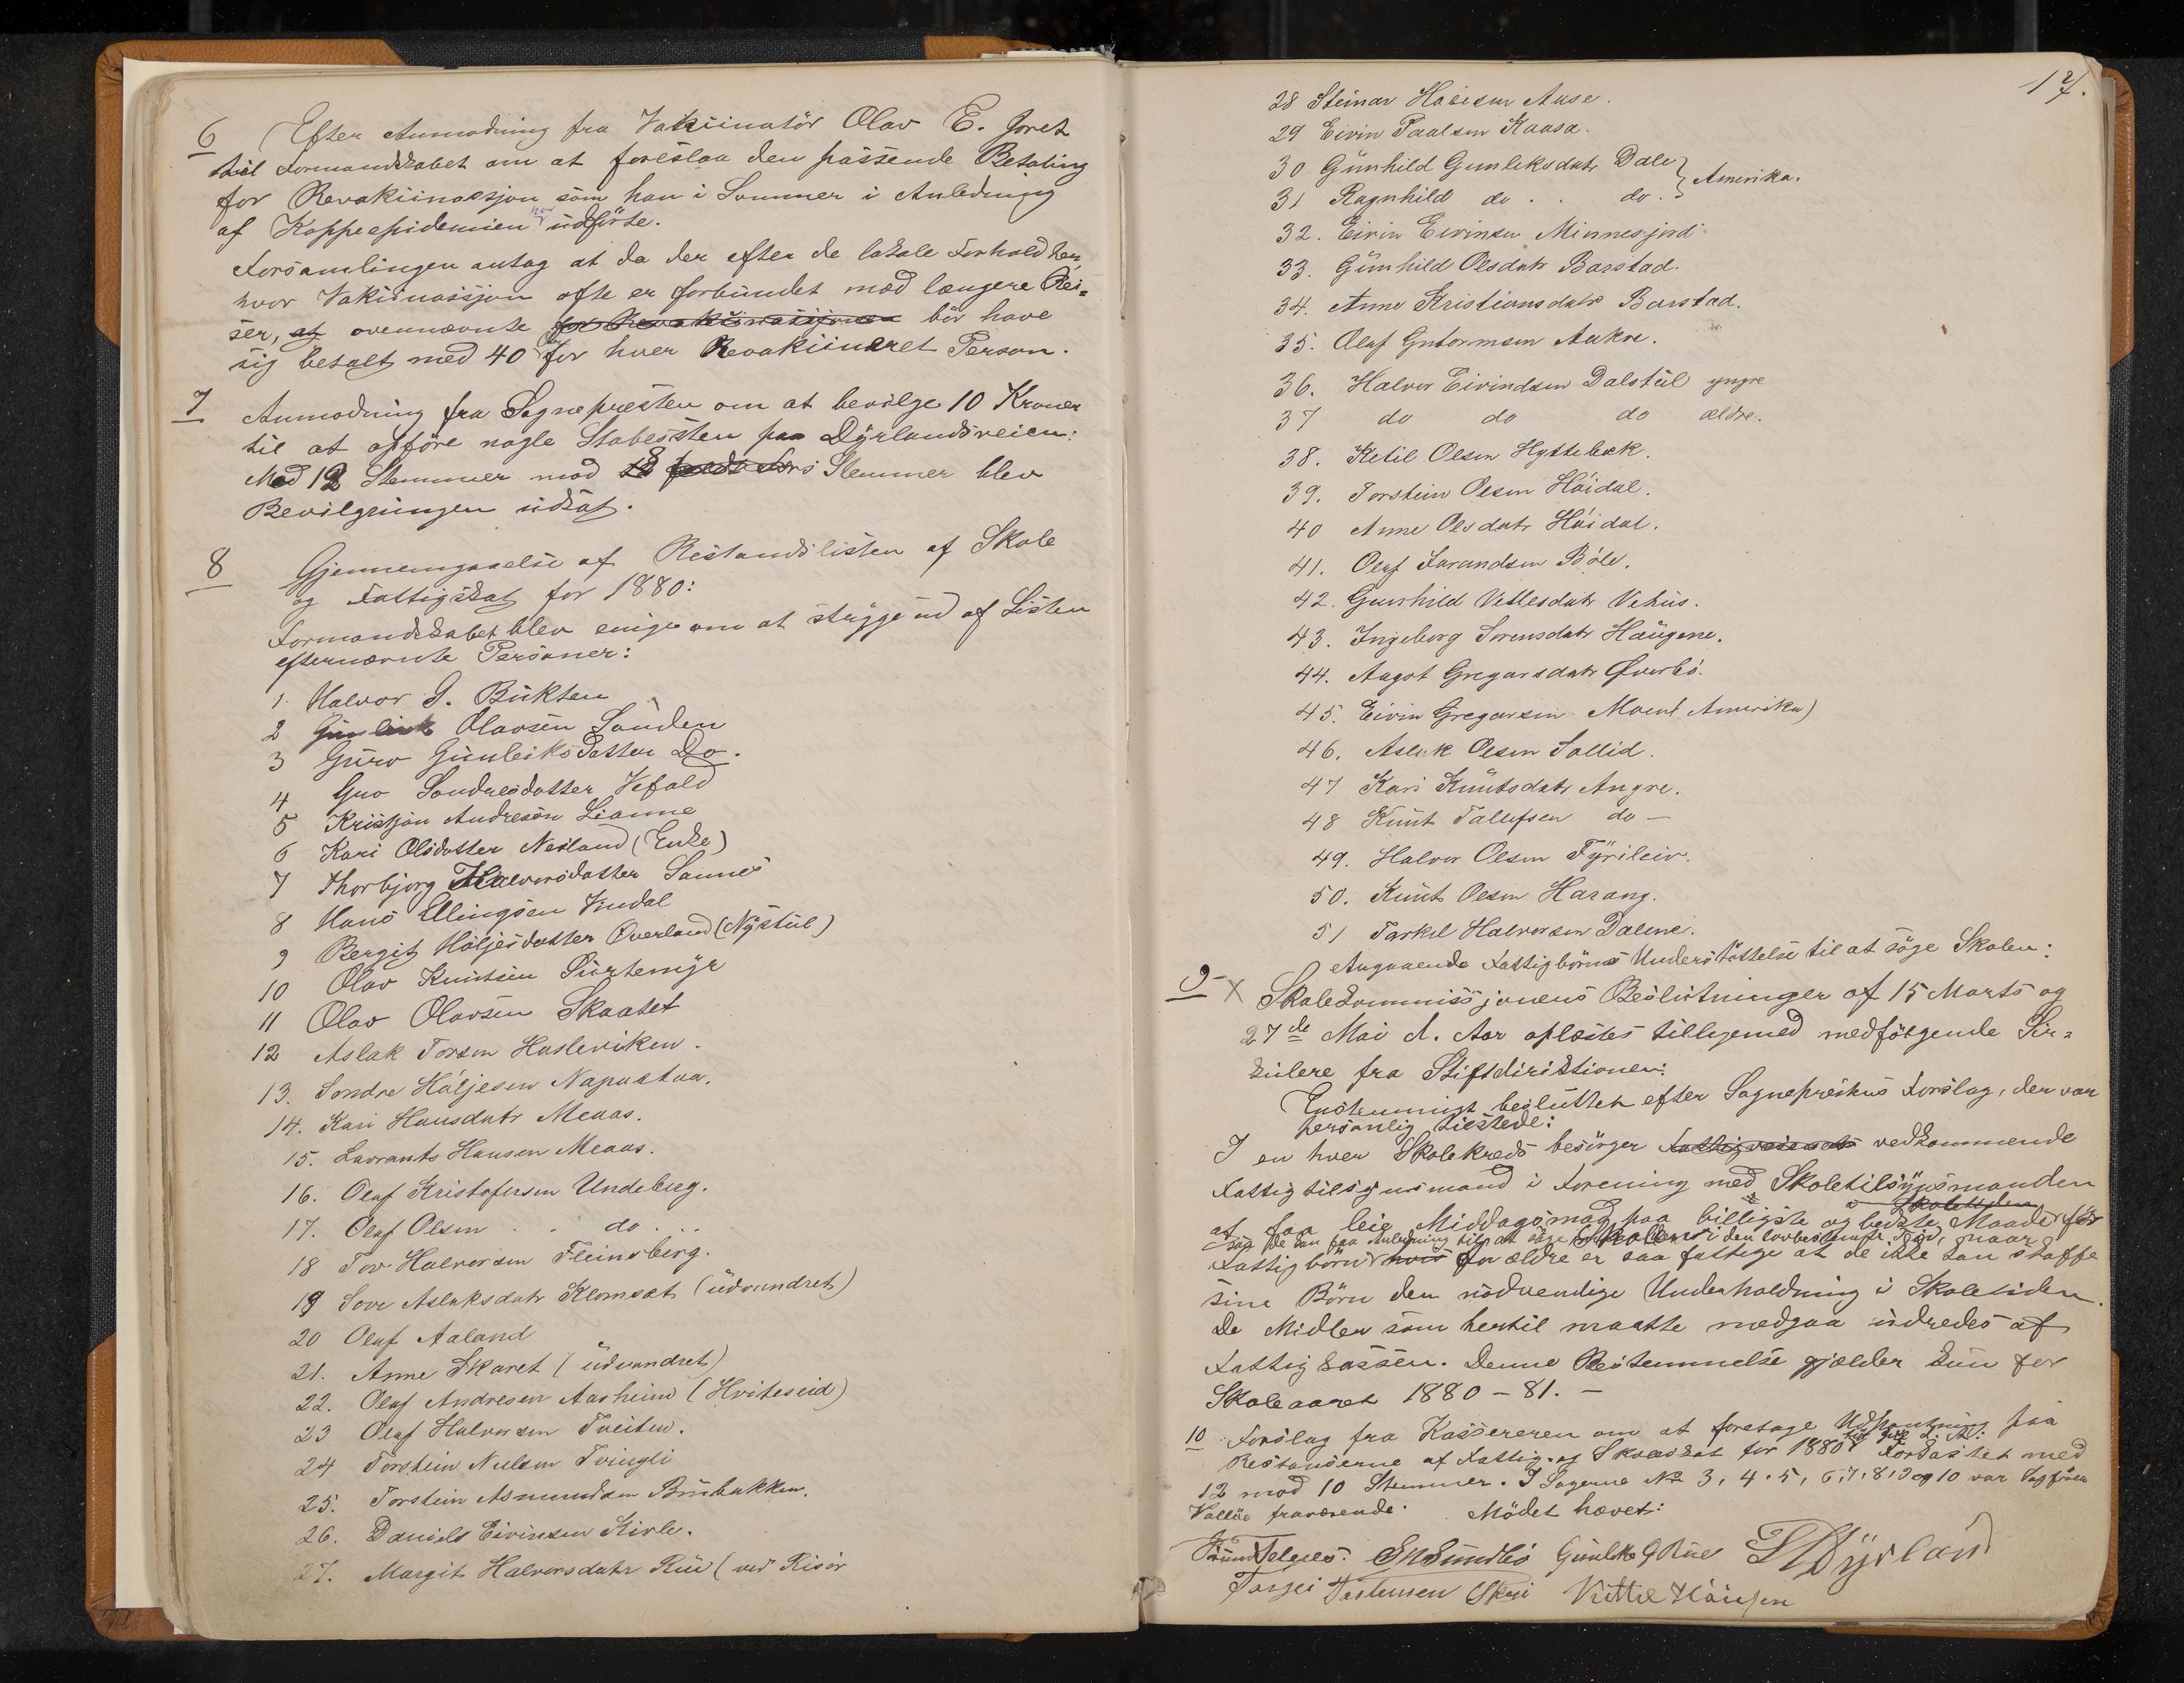 6 Efter Anmodning fra Vakiinatör Olav E. Joret
til Formandskabet om at foreslaa den passende Betaling
for Revakiinassjon som han i Sommer i Anledning
af Koppeepidemien her udförte.
Forsamlingen antog at da der efter de lokale Forhold her,
hvor Vakiinassjon ofte er forbundet med længere Rei=
ser, at ovennævnte for Revakiinassjonen bör have
sig betalt med 40 Öre for hver Revakiineret Person.
7 Anmodning fra Sognepresten om at bevilge 10 Kroner
til at opföre nogle Stabesten paa Dyrlandsveien:
Med 12 Stemmer mod Stemmer blev
Bevilgningen udsat.
8 Gjennemgaaelse af Restandslisten af Skole
og Fattigskat for 1880:
Formandskabet blev enige om at stryge ud af Listen
efternævnte Personer:
1 Halvor G. Bukten
2 Gunleik Olavsen Sanden
3 Guro Gunleiksdatter Do.
4 Guo Sondresdatter Vefald
5 Kristjan Andresön Lianne
6 Kari Olsdatter Nesland (Enke)
7 Thorbjorg Halvorsdatter Sannes
8 Hans Ellingsen Indal
9 Bergit Höljesdatter Överland (Nystul)
10 Olav Knutsen Surtemyr
11 Olav Olavsen Skaatet
12 Aslak Torsen Hasleviken.
13. Sondre Höljesen Napustaa.
14. Kari Hansdatr Meaas.
15. Lavrants Hansen Meaas.
16. Olaf Kristofersen Undeberg.
17. Olaf Olsen . . do . . .
18 Tov Halvorsen Fleinsberg.
19 Sove Aslaksdatr Klomsæt (udvandret)
20 Olaf Aaland
21. Anne Skaret (udvandret)
22. Olaf Andresen Aasheim (Hviteseid)
23 Olaf Halvorsen Tveiten.
24 Torstein Nielsen Tvingli
25. Torstein Asmundsen Brubakken.
26. Daniels Eivinsen Kivle.
27. Margit Halvorsdatr Rui (ved Risör
17.
28 Steinar Hansen Aase.
29 Eivin Paalsen Kaasa.
30 Gunhild Gunleksdatr Dale } Amerika.
31 Ragnhild do . . do.
32. Eivin Eivinsen Minnesjord
33. Gunhild Olsdatr Barstad.
34. Anne Kristiansdatr Barstad.
35. Olaf Gutormsen Aakre.
36. Halvor Eivindsen Dalstul yngre
37 do do do ældre.
38. Ketil Olsen Hyttebæk.
39. Torstein Olsen Höidal.
40 Anne Olsdatr Höidal.
41. Olaf Tarandsen Böle.
42. Gunhild Vetlesdatr Vehus.
43. Ingeborg Sörensdatr Haugene.
44. Aagot Gregarsdatr Øverbö.
45. Eivin Gregarsen Moen (Amerika)
46. Aslak Olsen Sollid.
47 Kari Knutsdatr Angre.
48 Knut Tallefsen do —
49. Halvor Olsen Fyrileiv.
50. Knut Olsen Harang.
51 Tarkel Halvorsen Dalene.
Angaaende Fattigbörns Understöttelse til at söge Skolen:
9 X Skolekommissjonens Beslutninger af 15 Marts og
27de Mai d. Aar oplæstes tilligemed medfölgende Sir=
kulere fra Stiftdirektionen:
Enstemmigt besluttet efter Sogneprestens Forslag, der var
personlig tilstede:
I en hver Skolekreds besörger Fattigvæsenets vedkommende
Fattigtilsynsmand i Forening med Skoletilsynsmanden
at faa leie Middagsmad paa billigste og bedste Maade for Skoletiden
saa de kan faa Anledning til at söge Skolen i den lovbestemte Tid, naar
Fattigbörn hvis Forældre er saa fattige at de ikke kan skaffe
sine Börn den nödvendige Underholdning i Skoletiden.
De Midler som hertil maatte medgaa udredes af
Fattigkassen. Denne Bestemmelse gjælder kun for
Skoleaaret 1880 – 81. –
10 Forslag fra Kassereren om at foretage Udpantning paa
Restanserne af Fattig- og Skoleskat for 1880 Forkastet med
12 mod 10 Stemmer. I Sagerne No 3, 4, 5, 6, 7, 8, 9 og 10 var Sagförer
Vallöe fraværende. Mödet hævet:
Telnes. Sundbö Gunleik G Rue Dyrland
Targei Tarkensen Skeri Kittel Hansen